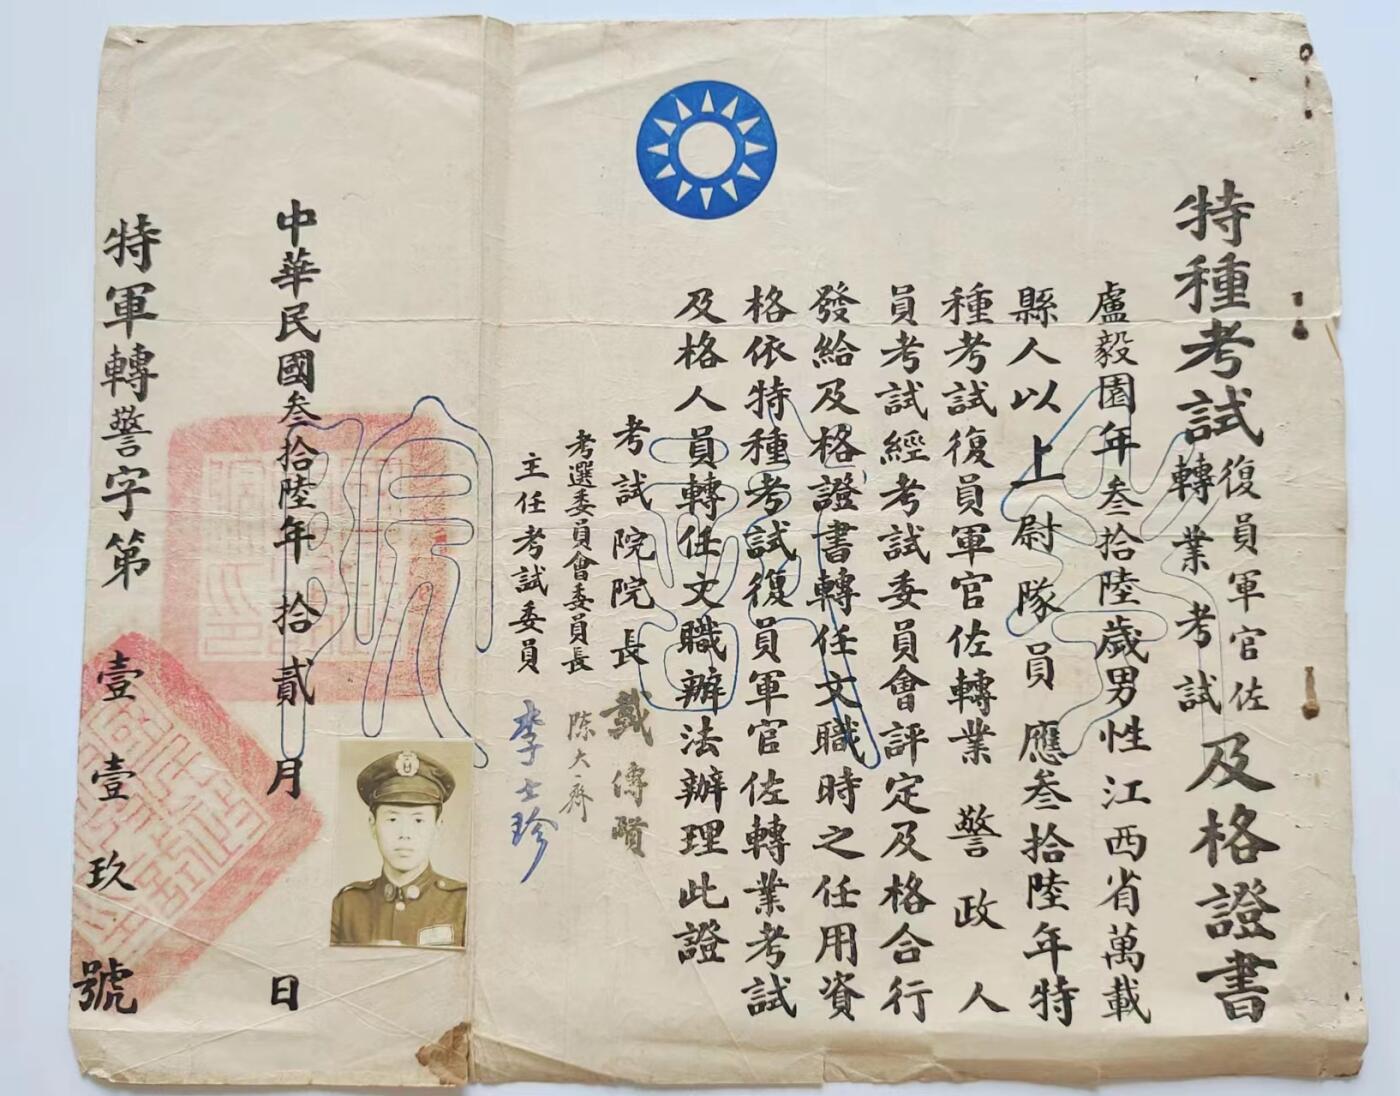 特種考試復員軍官佐轉業考試及格證書
盧毅園年叁拾陸歲男性江西省萬載
縣人以上尉隊員應叁拾陸年特
種考試復員軍官佐轉業警政人
員考試經考試委員會評定及格合行
發給及格證書轉任文職時之任用資
格依特種考試復員軍官佐轉業考試
及格人員轉任文職辦法辦理此證
考試院院長戴傳賢
考選委員會委員長陳大齊
主任考試委員李士珍
中華民國叁拾陸年拾貳月日
特軍轉警字第壹壹玖號